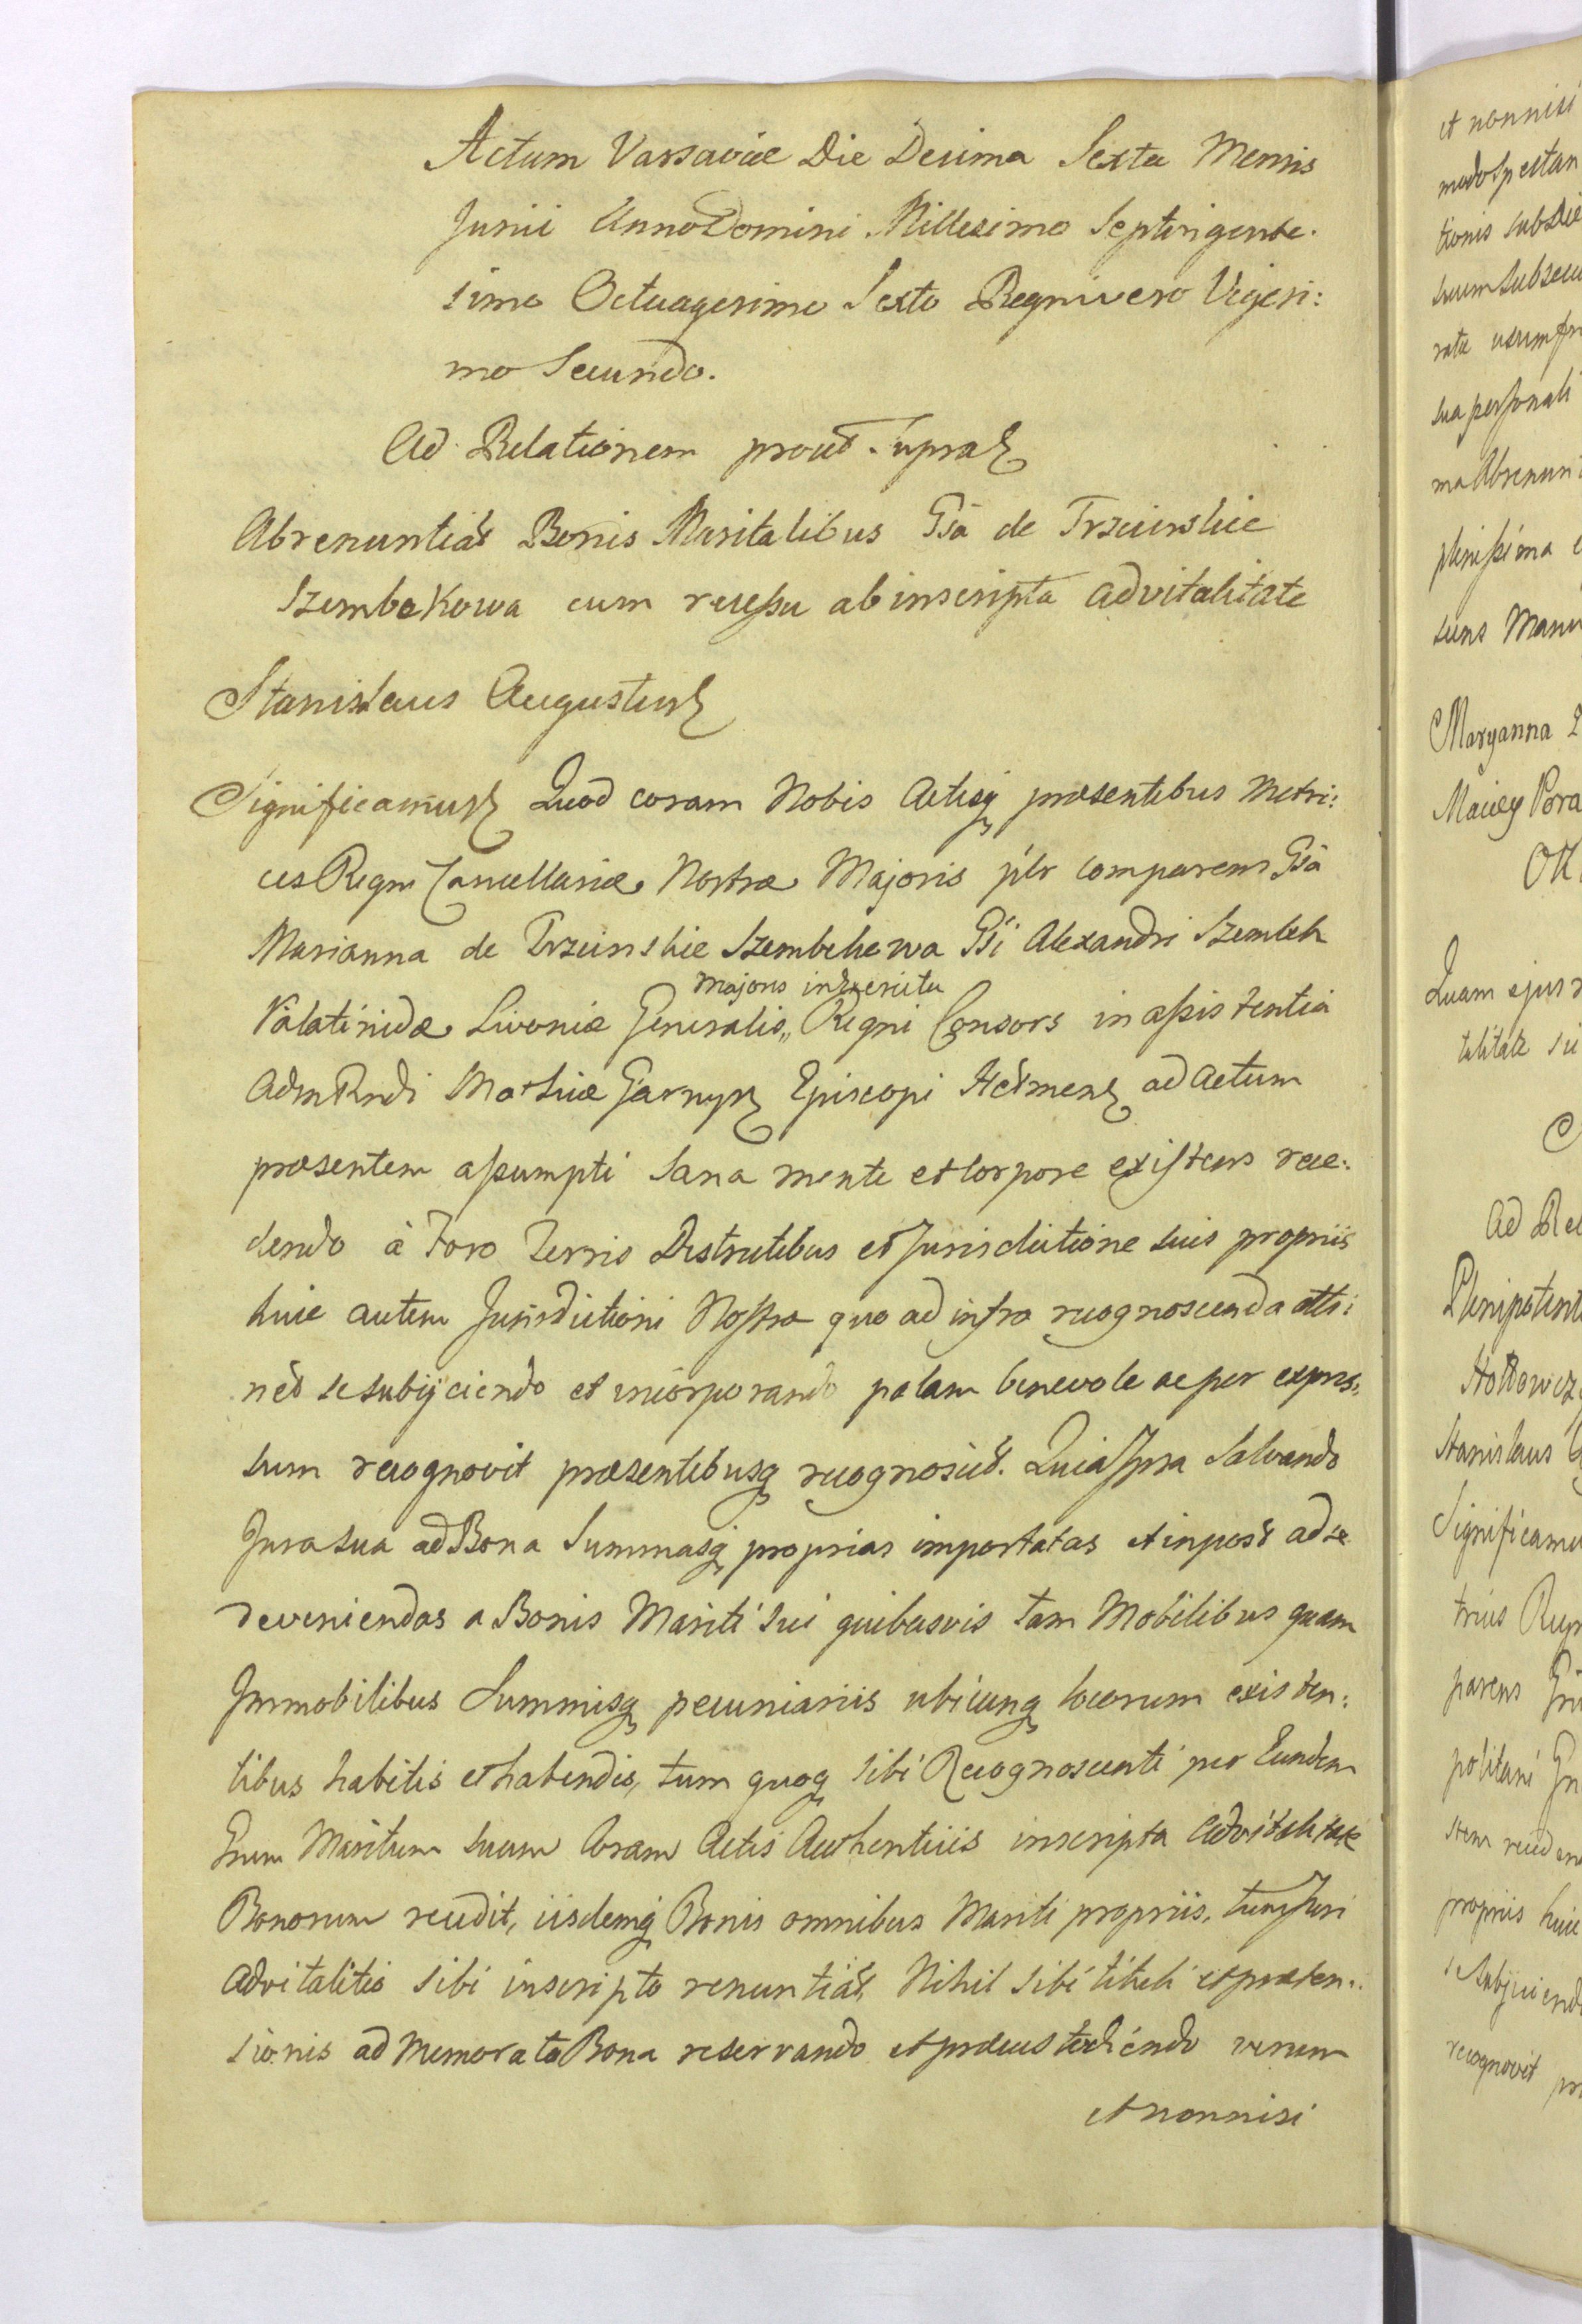 Actum Varsaviæ Die Decima Sexta Mensis
Junii Anno Domini Millesimo Septingente:
simo Octuagesimo Sexto Regni vero Vigesi:
mo Secundo.
Ad Relationem prout supra
Abrenuntiat Bonis Maritalibus Gsa de Trzcinskie
Szembekowa cum recessu ab inscripta advitalitate
Stanislaus Augustus
Significamus Quod coram Nobis Actisq presentibus Metri:
ces Regni Cancellariæ Nostræ Majoris plr comparens Gsa
Marianna de Trzcinskie Szembekowa Gsi Alexandri Szembek
Majoris in Exercitu
Palatinidæ Livoniæ Generalis,, Regni Consors in assistentia
Adm Rndi Mathiæ Garnysz Episcopi Chelmens ad actum
præsentem assumpti Sana mente et Corpore existens rece:
dendo à Foro Terris Districtibus et Jurisdictione suis propriis
huic autem Jurisdictioni Nostræ quo ad infra recognoscenda atti:
net se subijciendo et incorporando palam benevole ac per expres:
sum recognovit præsentibusq recognoscit. Quia Ipsa Salvando
Jura sua ad Bona Summasq proprias importatas et in post ad se
deveniendas a Bonis Mariti sui quibusvis tam Mobilibus quam
Immobilibus Summisq pecuniariis ubicunq locorum existen:
tibus habitis et habendis, tum quoq sibi Recognoscenti per Eundem
Gnum Maritum suum Coram Actis Authenticis inscripta advitalitate
Bonorum recedit, iisdemq Bonis omnibus Mariti propriis, tum Juri
advitalitio sibi inscripto renuntiat, Nihil sibi tituli et præten:
sionis ad Memorata Bona reservando et præcustodiendo verum
et nonnisi
et nonnisi
modo spectan
tionis
suum subsecu
ratæ usumfr
sua personali
ma Abrenun
plenissima
suns Manu
Maryanna
Maciey Pora
Quam ejus
talitate
Ad Re
Plenipotent
Stanislaus
Significamu
trices Regn
parens
politani
propriis huic
se subjiciend
recognovit